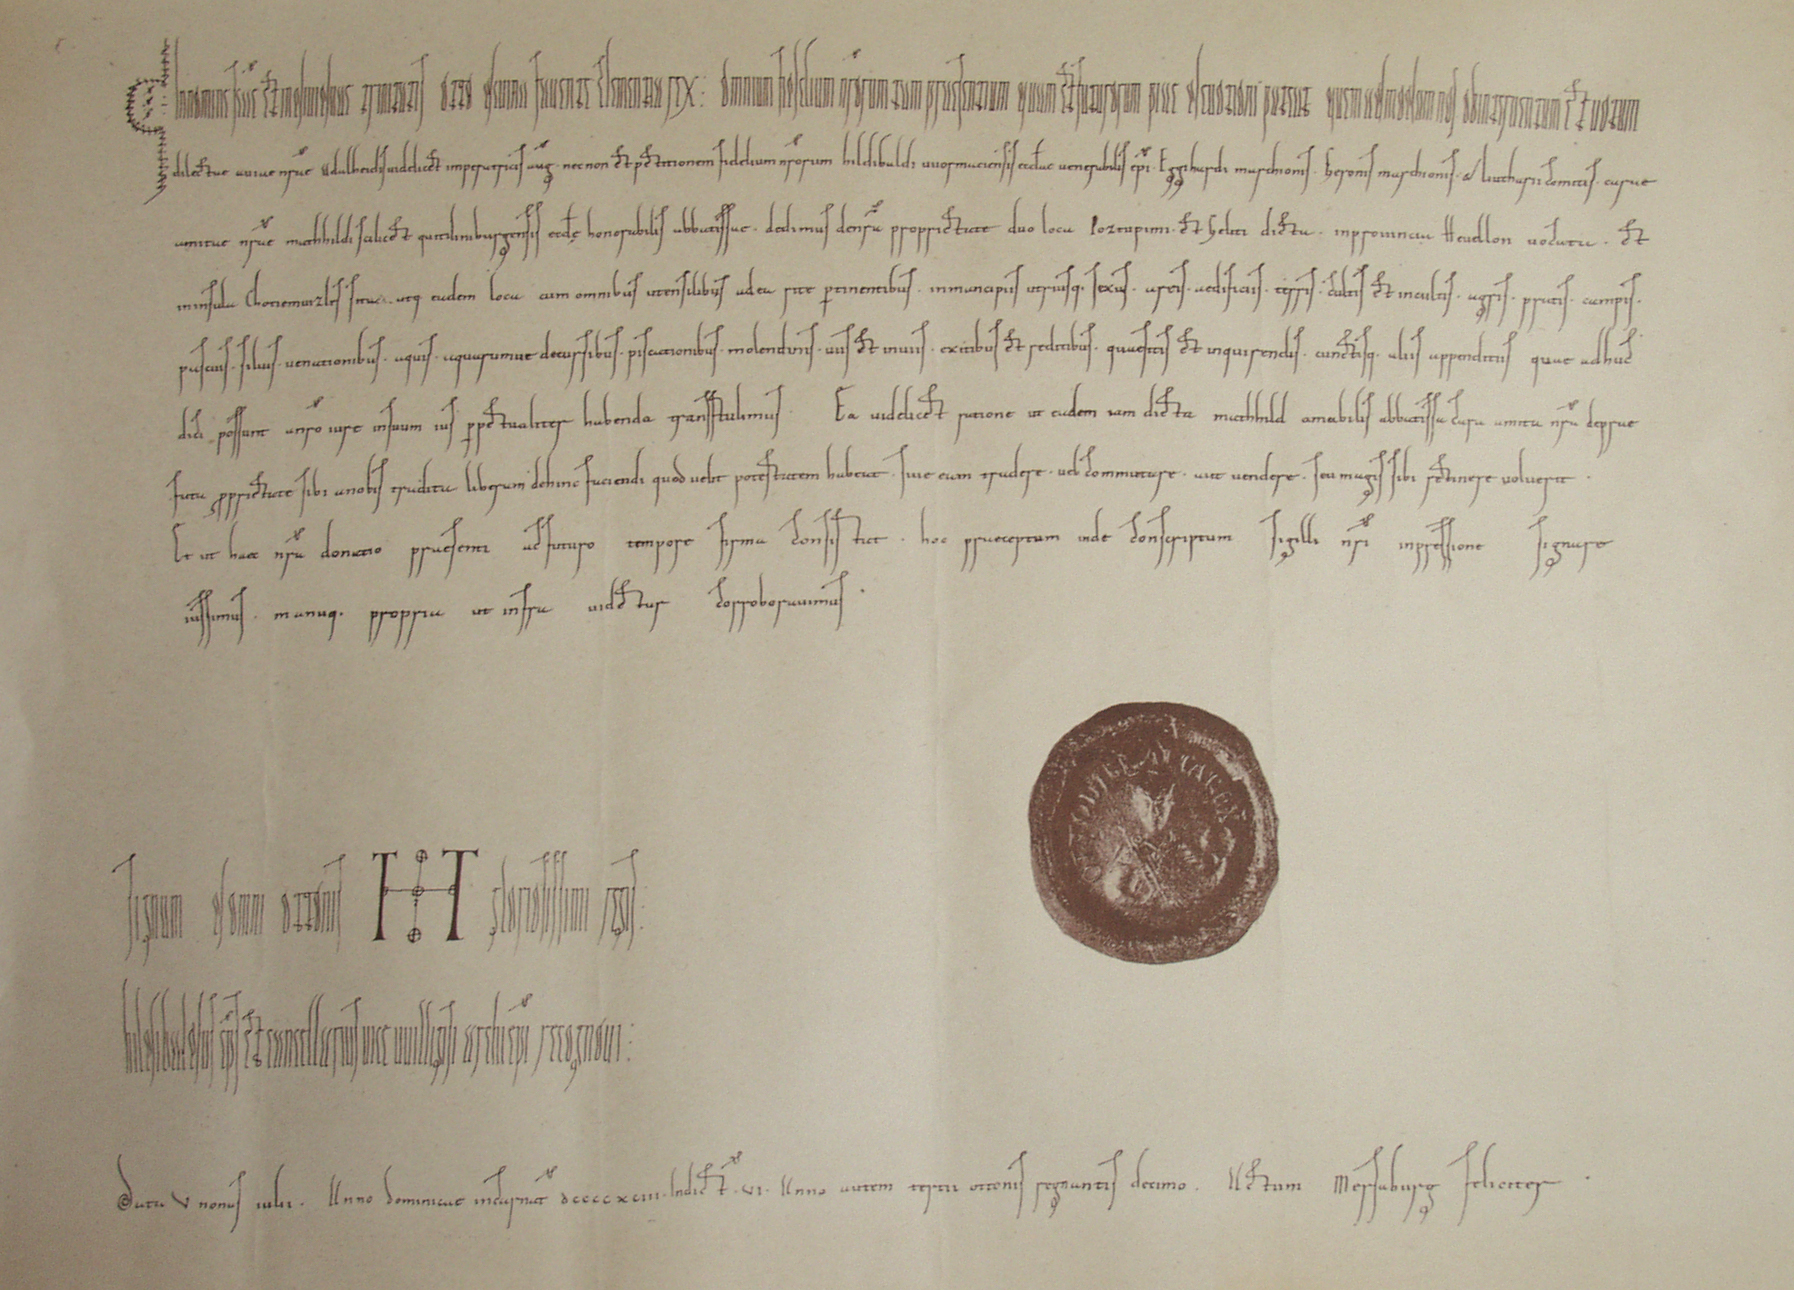 In nomine sancte et individue trinitatis Otto divina favente clementia rex: Omnium fidelium nrorum tam presentium quam et futurorum pie devotioni pateat quem ad modum nos ob interventum et votum
dilectae aviae nrae Adalheidis videlicet imperatricis aug. nec non et petitionem fidelium nrorum hildibaldi vvormaciensis eccle venerabilis epi. Eggihardi marchionis. beronis marchionis. & liutharii comitis. carae
amitae nrae mathhildi scilicet quitiliniburgensis eccle honorabilis abbatissae. dedimus de nra proprietate duo loca Poztupimi. et Geliti dicta. in provincia Hevellon vocata. et
in insula Chotiemuizles sita. utq eadem loca cum omnibus utensilibus ad ea rite pertinentibus. in mancipiis utriusq. sexus. areis. aedificiis. terris. cultis et incultis. agris. pratis. campis.
pascuis. silvis. venationibus. aquis. aquarumve decursibus. piscationibus. molendinis. viis et inviis. exitibus et reditibus. quaesitis et inquirendis. cunctisq. aliis appenditiis quae adhuc
dici possunt a nro iure in suum ius perpetualiter habenda transtulimus. Ea videlicet ratione ut eadem iam dicta mathhild amabilis abbatissa cara amita nra de prae
fata proprietate sibi a nobis tradita liberam dehinc faciendi quod velit potestatem habeat. sive eam tradere. vel commutare. aut vendere. seu magis sibi retinere voluerit.
Et ut haec nra donatio praesenti ac futuro tempore firma consistat. hoc praeceptum inde conscriptum sigilli nri inpressione signare
iussimus. manuq. propria ut infra videtur corroboravimus.
OTTO DI GRATIA REX
Signum domni ottonis gloriosissimi regis:
hildibaldus eps et cancellarius vice vuilligisi archiepi recognovi:
Data V nonas iulii. Anno dominicae incarnat dcccc xciii. Indict. vi. Anno autem tertii ottonis regnantis decimo. Actum Mersaburg feliciter.